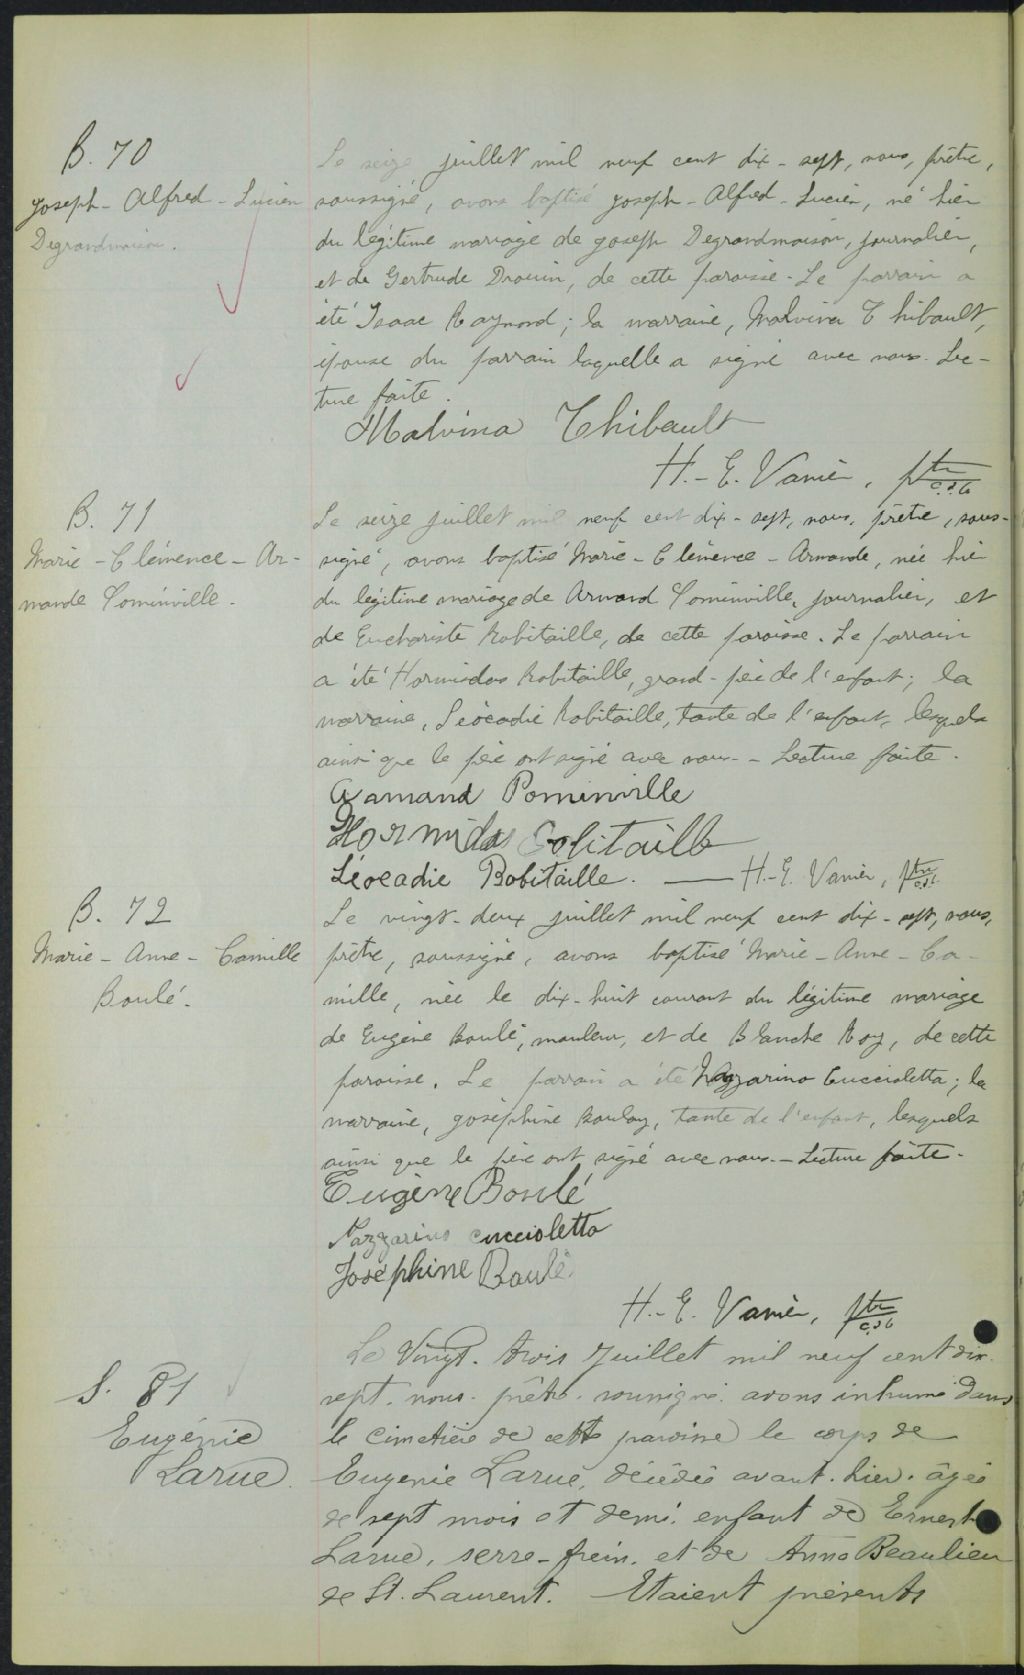 B. 70
Joseph - Alfred - Lucien
Degrandmaison.
Le seize juillet mil neuf cent dix - sept, nous, prêtre,
soussigné, avons baptisé Joseph - Alfred - Lucien, né hier
du légitime mariage de Joseph Degrandmaison, journalier,
et de Gertrude Drouin, de cette paroisse - Le parrain a
été Isaac Raymond; la marraine, Malvina Thibault,
épouse du parrain laquelle a signé avec nous. Lec-
ture faite.
Malvina Thibault
H.- E. Vanier, ptre
B. 71
Marie - Clémence - Ar-
mande Pominville.
Le seize juillet mil neuf cent dix - sept, nous, prêtre, sous-
signé, avons baptisé Marie - Clémence - Armande, née hier
du légitime mariage de Armand Pominville, journalier, et
de Euchariste Robitaille, de cette paroisse. Le parrain
a été Hormisdas Robitaille, grand-père de l'enfant; la
marraine, Léocadie Robitaille, tante de l'enfant, lesquels
ainsi que le père ont signé avec nous. - Lecture faite.
Armand Pominville
Hormidas Robitaille
Léocadie Robitaille. — H.-E. Vanier, ptre
B. 72
Marie - Anne - Camille
Boulé.
Le vingt-deux juillet mil neuf cent dix - sept, nous,
prêtre, soussigné, avons baptisé Marie - Anne - Ca-
mille, née le dix-huit courant du légitime mariage
de Eugène Boulé, mouleur, et de Blanche Roy, de cette
paroisse. Le parrain a été Nazzarino Cuccioletta; la
marraine, Joséphine Boulay, tante de l'enfant, lesquels
ainsi que le père ont signé avec nous. - Lecture faite.
Eugène Boulé
Nazzarino Cuccioletta
Joséphine Boulé
H.- E. Vanier, ptre
S. 81
Eugénie
Larue.
Le Vingt-trois Juillet mil neuf cent dix
sept. nous. prêtre. soussigné. avons inhumé dans
le cimetière de cette paroisse le corps de
Eugenie Larue, décédée avant-hier. âgée
de sept mois et demi. enfant de Ernest
Larue, serre-frein. et de Anna Beaulieu
de St. Laurent. Etaient présents